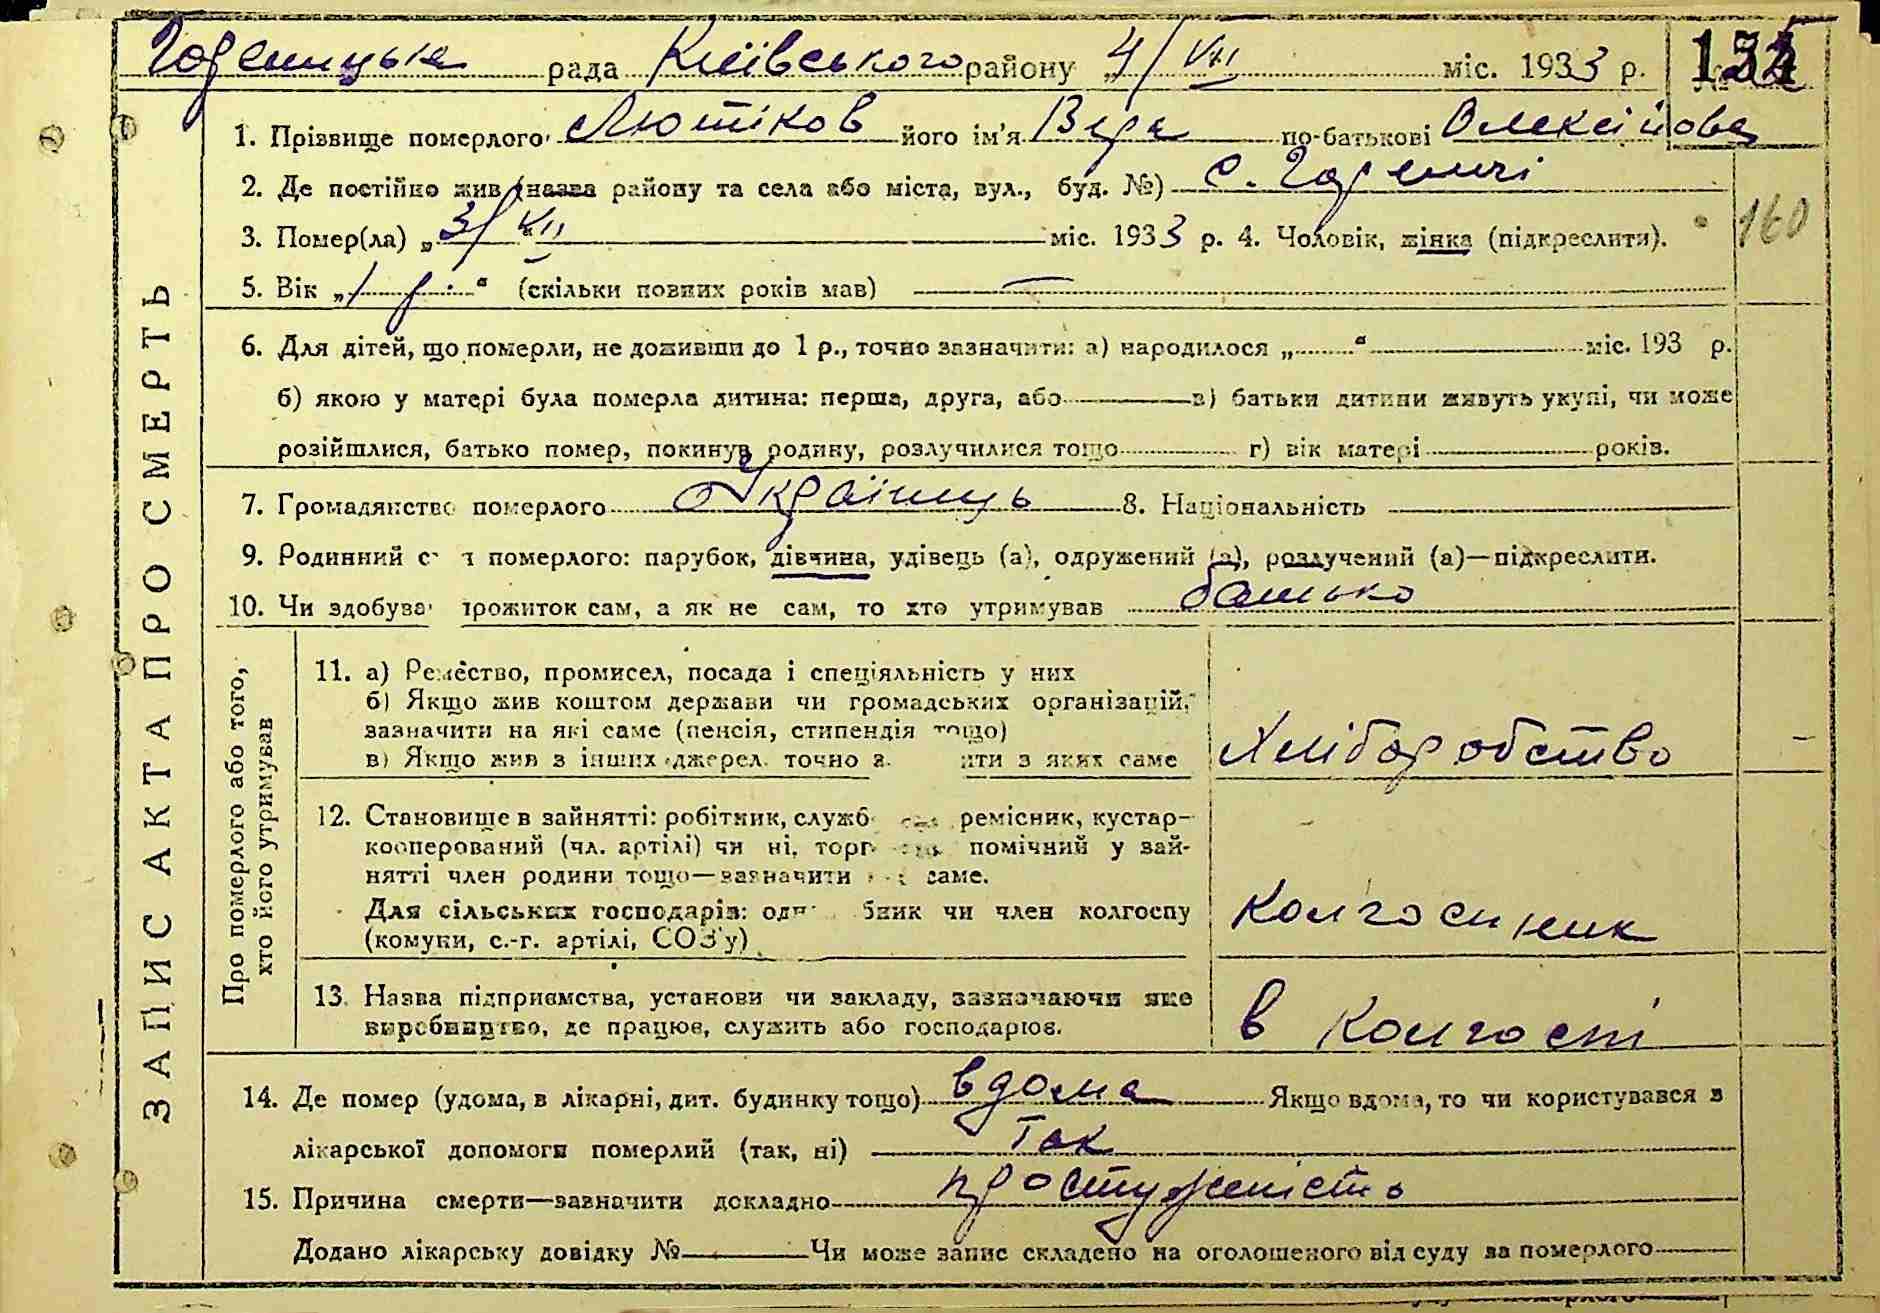 Гореницька рада Київського району „4/VII міс. 1933 р. №
1. Прізвище померлого Лютіков його ім'я Віра по-батькові Олексійовна
2. Де постійно жив (назва району та села або міста, вул., буд. №) с. Гореничі
3. Помер(ла) „3/VII“ міс. 1933 р. 4. Чоловік, жінка (підкреслити).
160
5. Вік „1 р.“ (скільки повних років мав) —
6. Для дітей, що померли, не доживши до 1 р., точно зазначити: а) народилося „......“ міс. 193 р.
б) якою у матері була померла дитина: перша, друга, або в) батьки дитини живуть укупі, чи може
розійшлися, батько помер, покинув родину, розлучилися тощо г) вік матері років.
7. Громадянство померлого Українець 8. Національність
9. Родинний с н померлого: парубок, дівчина, удівець (а), одружений (а), розлучений (а)—підкреслити.
10. Чи здобува прожиток сам, а як не сам, то хто утримував батько
ЗАПИС АКТА ПРО СМЕРТЬ
Про померлого або того,
хто його утримував
11. а) Ремество, промисел, посада і спеціяльність у них
б) Якщо жив коштом держави чи громадських організацій,
зазначити на які саме (пенсія, стипендія тощо)
в) Якщо жив з інших джерел, точно з ити з яких саме
Хліборобство
12. Становище в зайнятті: робітник, служб ремісник, кустар-
кооперований (чл. артілі) чи ні, торг помічний у зай-
нятті член родини тощо—зазначити саме.
Для сільських господарів: од бник чи член колгоспу
(комуни, с.-г. артілі, СОЗ'у)
Колгоспник
13. Назва підприємства, установи чи закладу, зазначаючи яке
виробництво, де працює, служить або господарює.
в Колгоспі
14. Де помер (удома, в лікарні, дит. будинку тощо) вдома Якщо вдома, то чи користувався з
лікарської допомоги померлий (так, ні) Так
15. Причина смерти—зазначити докладно простуженість
Додано лікарську довідку № Чи може запис складено на оголошеного від суду за померлого